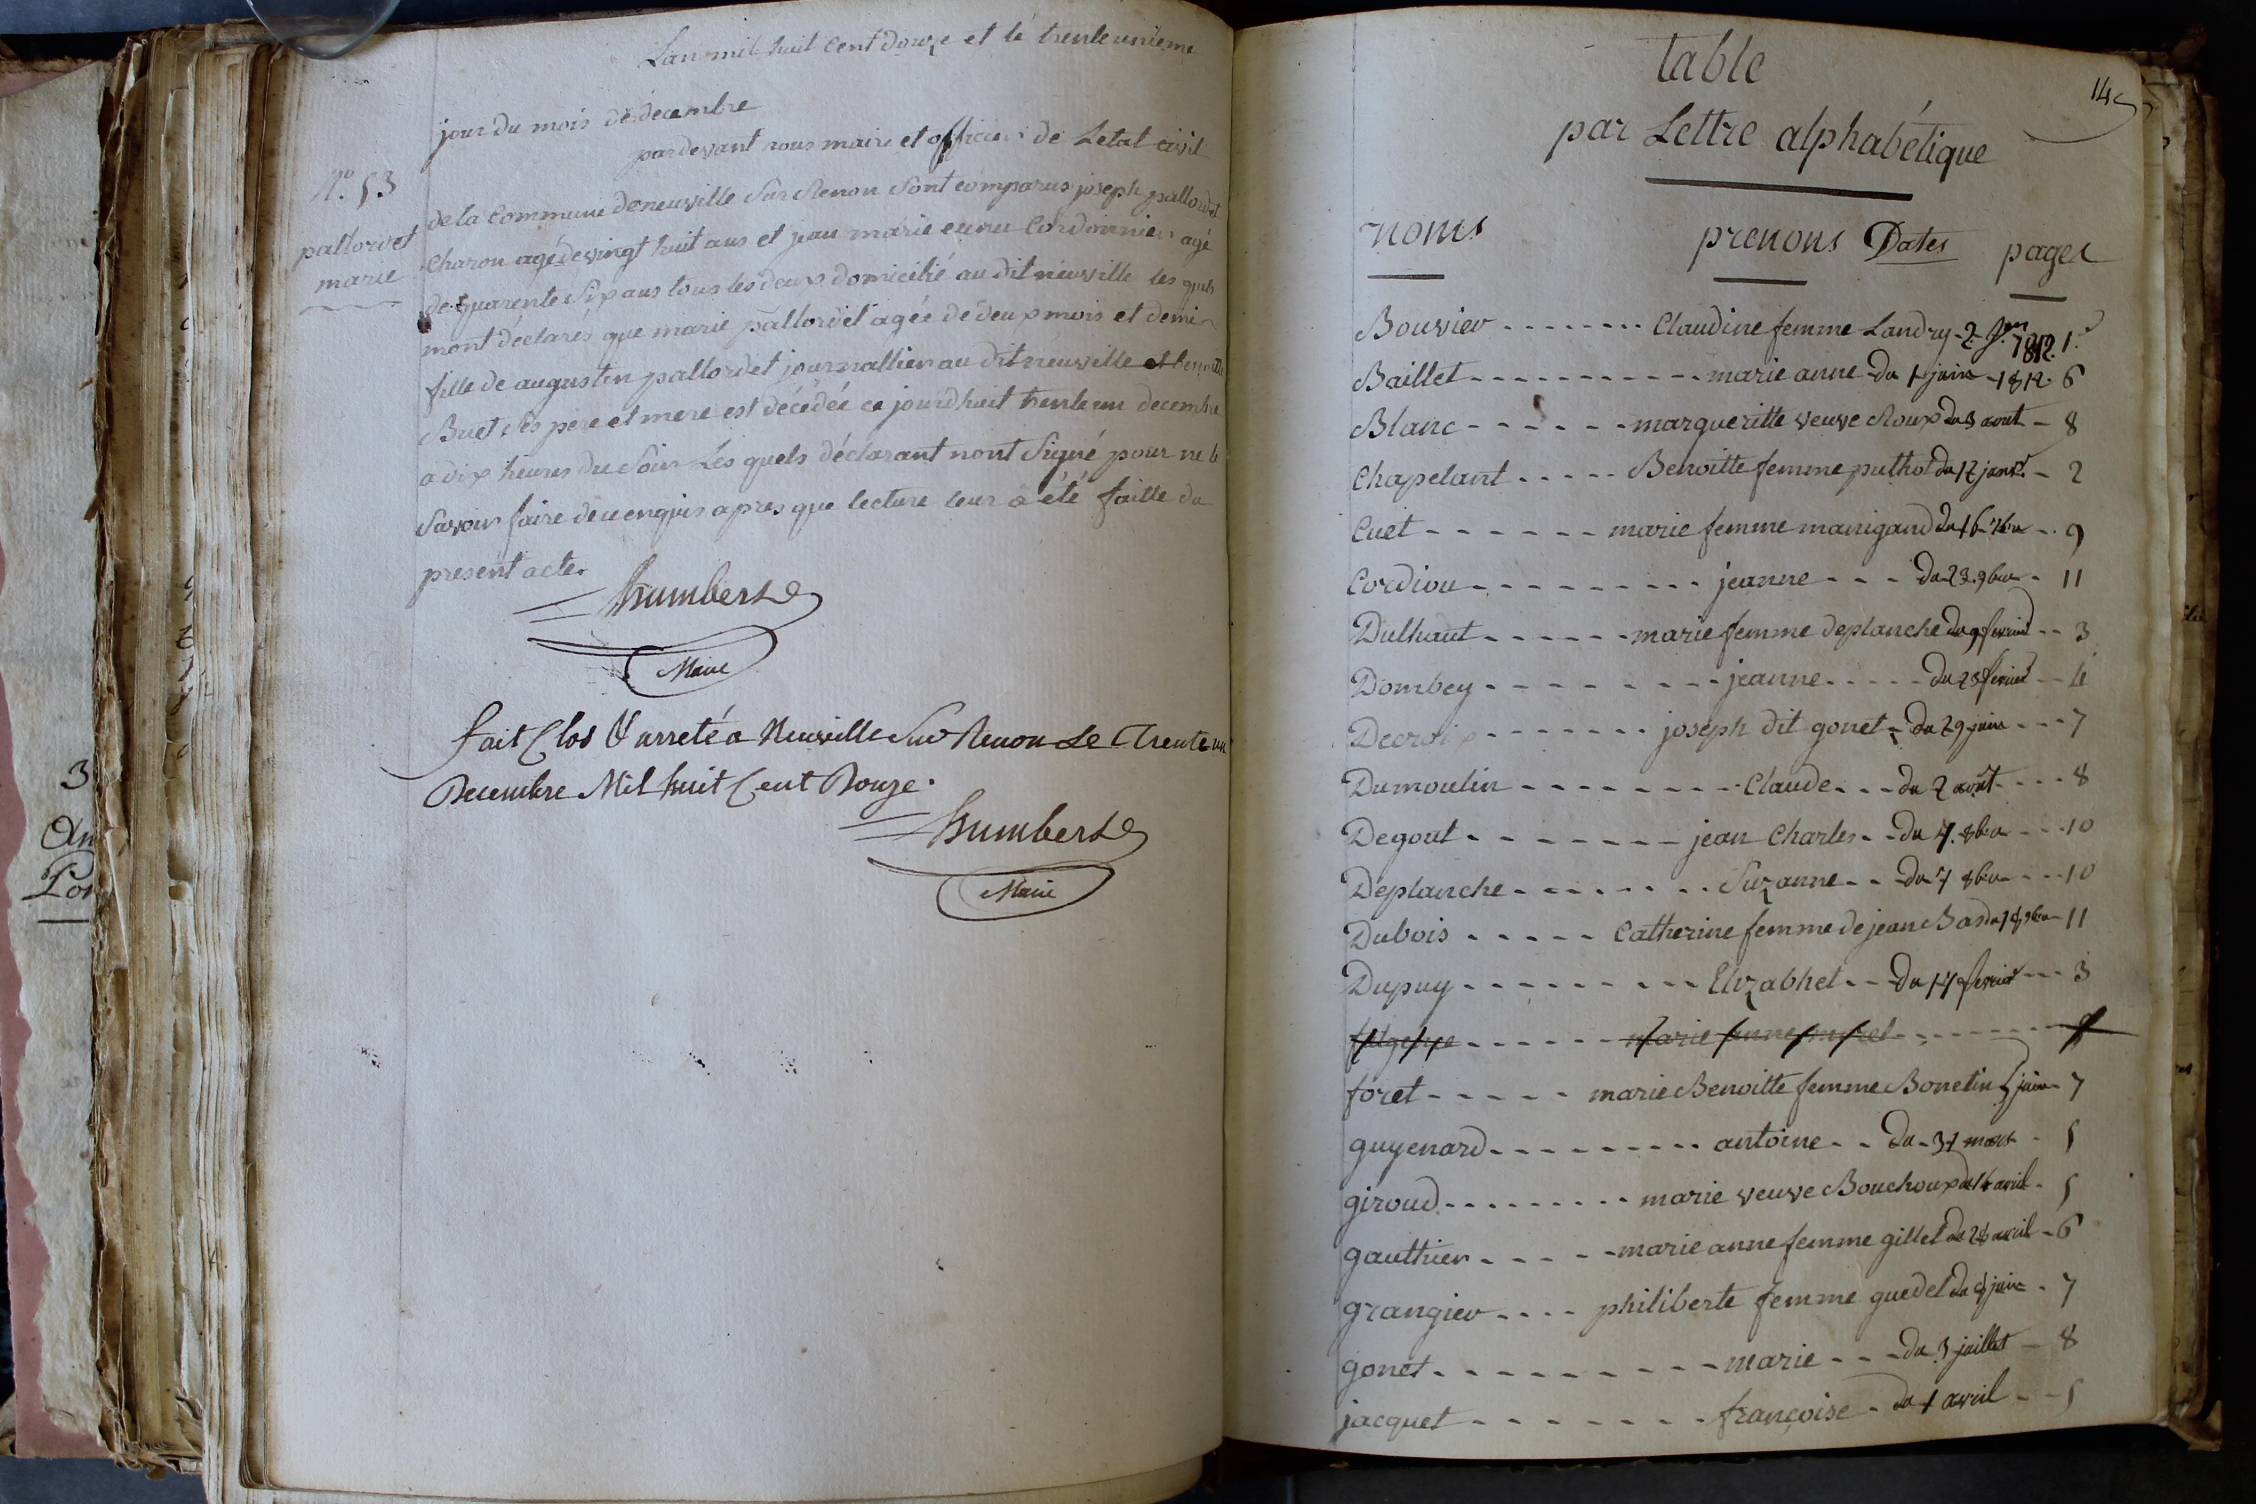 Lan mil huit cent douze et le trente unieme
jour du mois de decembre
pardevant nous maire et officier de Letat civil
N.o 53
pallordet
marie
de la Commune de neuville Sur Renon Sont comparus joseph pallordet
charon agé de vingt huit ans et jean marie cordonnier agé
de quarente Six ans tous les deux domicilié au dit neuville les quels
mont declarés que marie pallordet agée de deux mois et demi
fille de augustin pallordet journallier au dit neuville et benoitte
Buet Ses pere et mere est décédée ce jourdhuit trente un decembre
a dix heures du Soir Les quels déclarant nont Signé pour ne le
Savoir faire de ce enquis apres que lecture leur a été faitte du
present acte.
humbert
Maire
fait Clos & arreté a Neuville Sur Renon Le Trente un
Decembre Mil huit Cent Douze.
humbert
Maire
3
An
Pon
14
table
par Lettre alphabétique
noms prenons Dates pages
Bouvier Claudine femme Landry 2 jer 1812. 1.
Baillet marie anne du 1 juin 1812. 6
Blanc margueritte veuve Roux du 3 aout 8
Chapelant Benoitte femme puthod du 12 janvr 2
Cuet marie femme manigand du 16 7bre 9
Cordiou jeanne du 23. 9bre 11
Dulhaut marie femme deplanche du 9 fevrier 3
Dombey jeanne du 23 fevrier 4
Decroix joseph dit gonet du 29 juin 7
Dumoulin Claude du 2 aout 8
Degout jean Charles du 4. 8bre 10
Deplanche Suzanne du 7 8bre 10
Dubois Catherine femme de jean Bas du 18 9bre 11
Dupuy Elizabhet du 17 fevrier 3
marie anne
foret marie Benoitte femme Bonetin 5 juin 7
guyenard antoine du 31 mars 5
giroud marie veuve Bouchoux du 16 avril 5
gauthier marie anne femme gillet du 28 avril 6
grangier philiberte femme guedel du 9 juin 7
gonet marie du 3 juillet 8
jacquet françoise du 1 avril 5